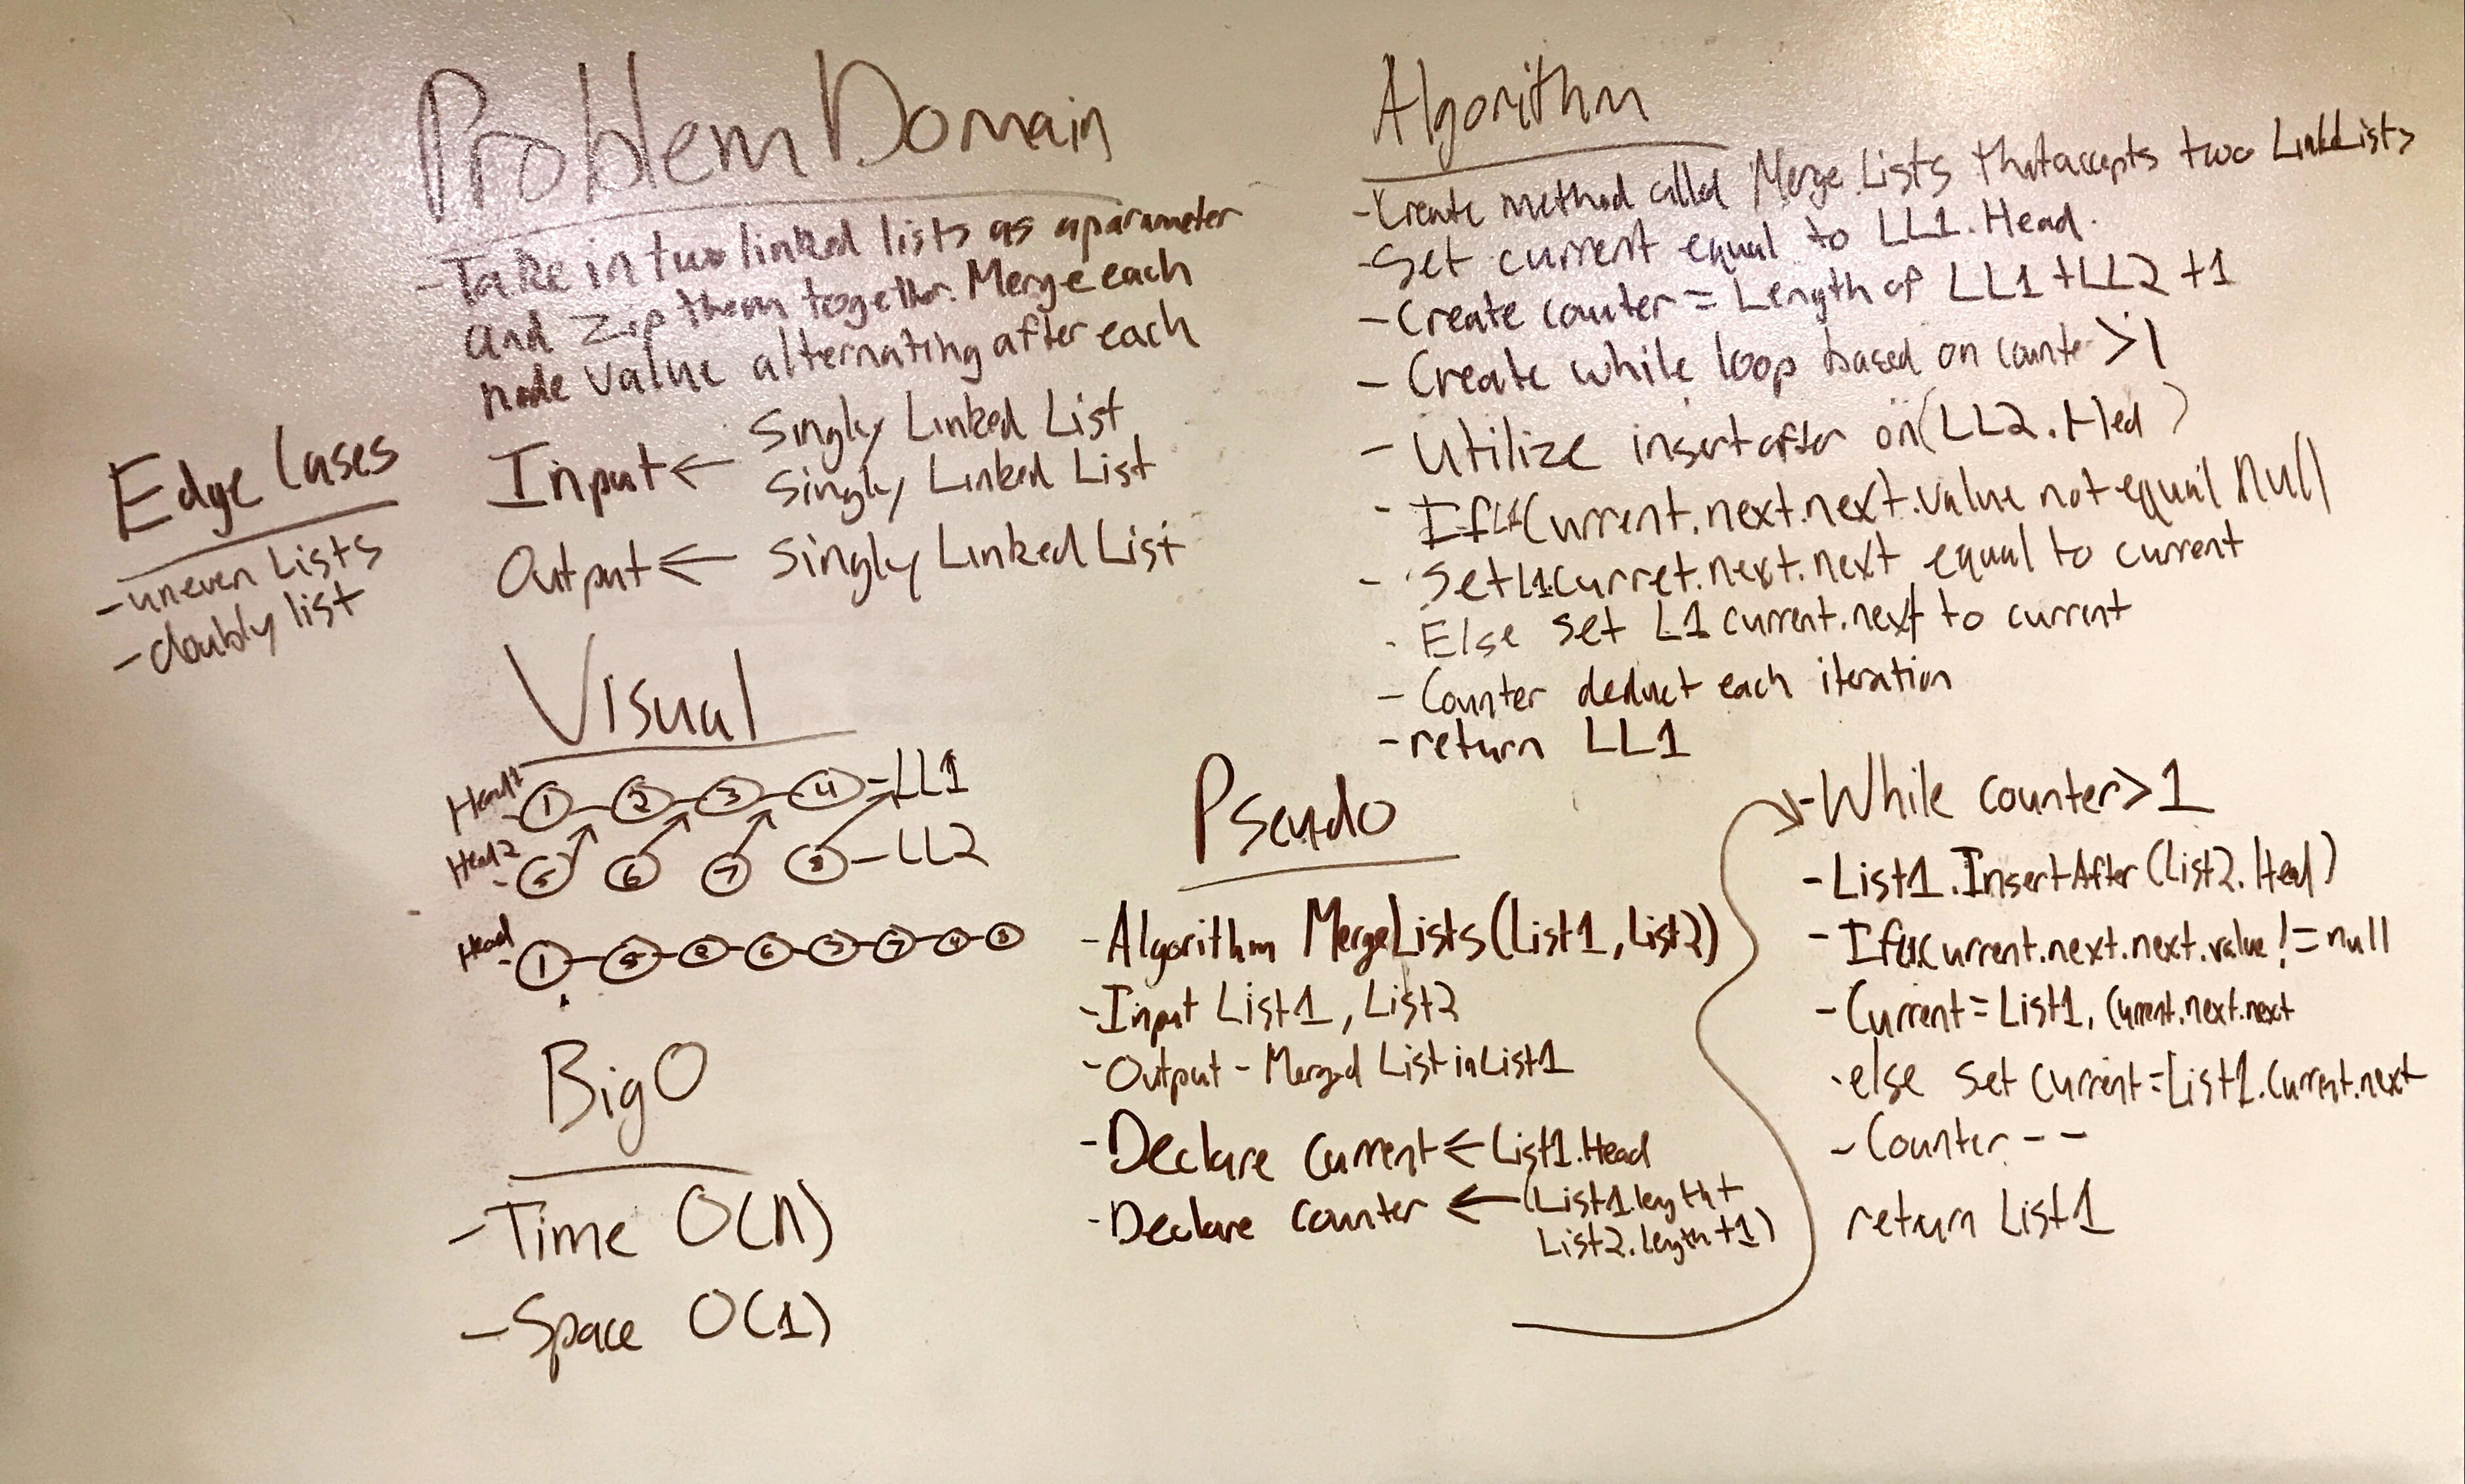 Problem Domain
- Take in two linked lists as a parameter
and zip them together. Merge each
node value alternating after each
Input ← Singly Linked List
Singly Linked List
Output ← Singly Linked List
Edge Cases
- uneven Lists
- doubly list
Visual
Head1 - 1 2 3 4 - LL1
Head2 - 5 6 7 8 - LL2
Head - 1 5 2 6 3 7 4 8
Big O
- Time O(n)
- Space O(1)
Algorithm
- Create method called Merge Lists that accepts two LinkLists
- Set current equal to LL1.Head.
- Create counter = Length of LL1 + LL2 + 1
- Create while loop based on counter > 1
- Utilize insert after on (LL2.Hed)
- If L1 Current.next.next.value not equal null
- Set L1 Curret.next.next equal to current
- Else set L1 current.next to current
- Counter deduct each iteration
- return LL1
Pseudo
- Algorithm MergeLists(List1, List2)
- Input List1, List2
- Output - Merged List in List1
- Declare Current ← List1.Head
- Declare Counter ← (List1.length +
List2.length + 1)
- While counter > 1
- List1.InsertAfter(List2.Head)
- If Current.next.next.value != null
- Current = List1, Current.next.next
- else set current = List1.Current.next
- Counter - -
return List1